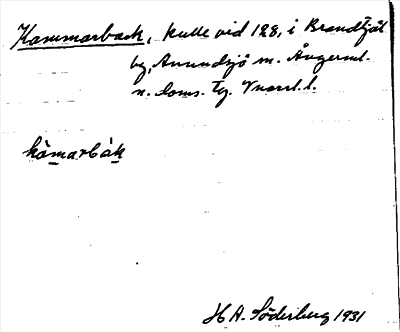 Kammarback, kulle vid 128, i Brandtjäl
by, Anundsjö m. Ångerml.
n. doms. tg. V
kåmarbàk
H A. Söderberg 1931